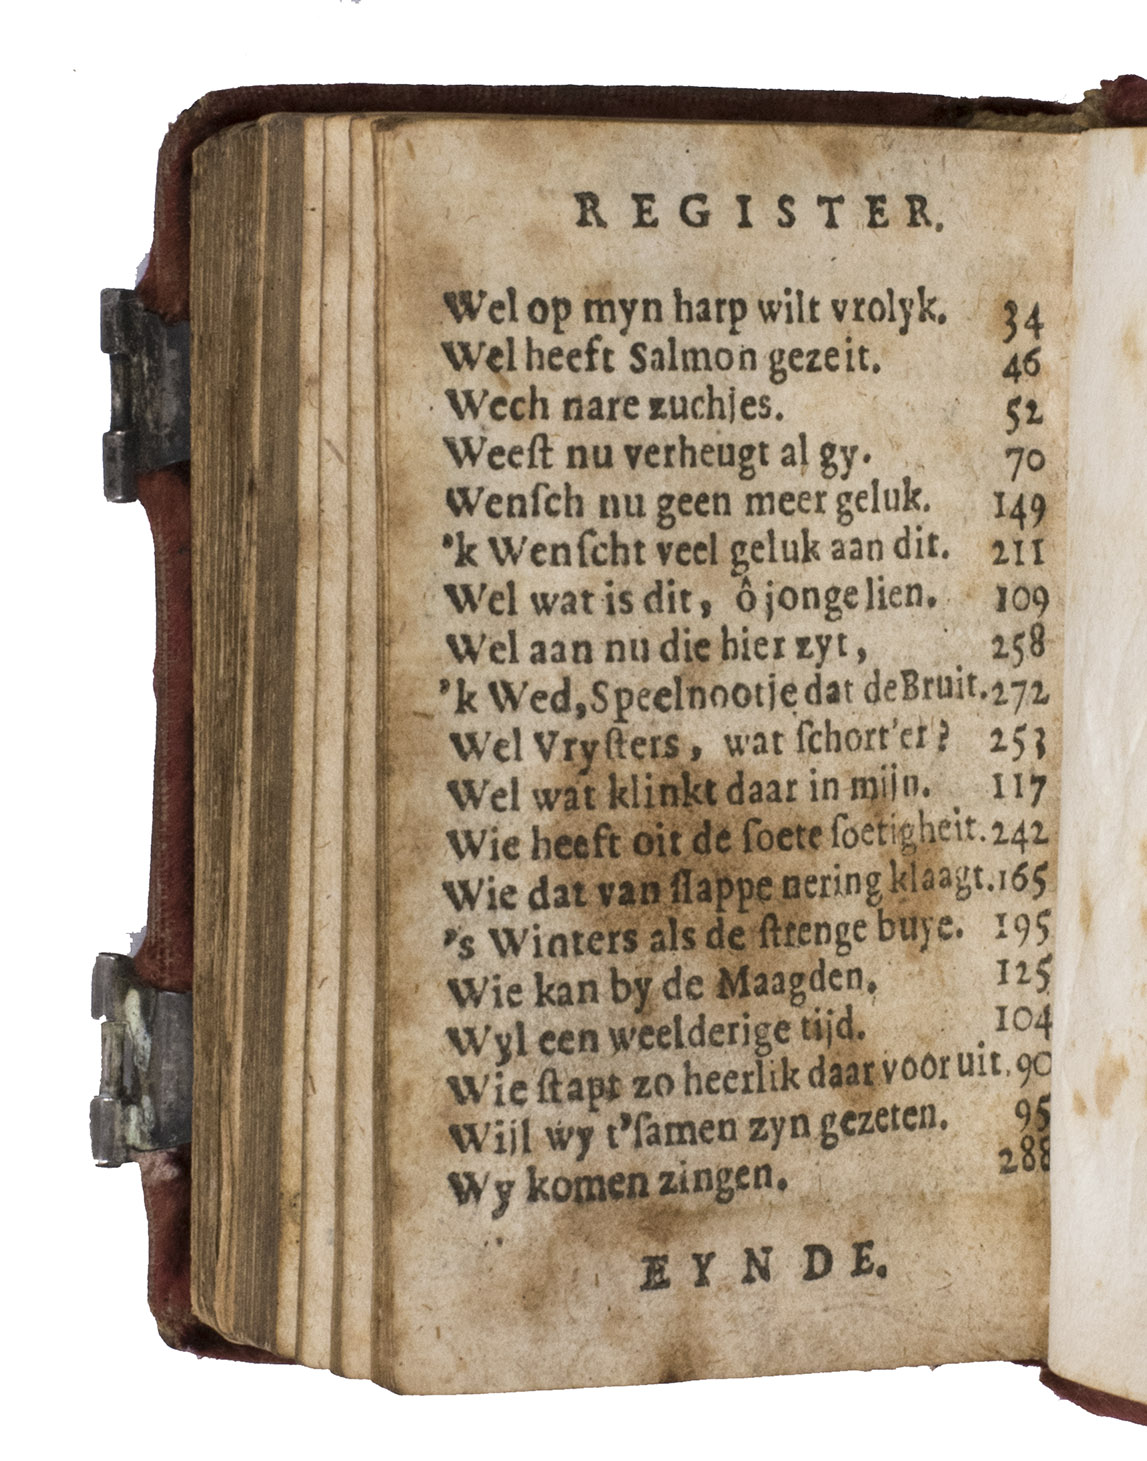 REGISTER.
Wel op myn harp wilt vrolyk. 34
Wel heeft Salmon gezeit. 46
Wech nare zuchjes. 52
Weeſt nu verheugt al gy. 70
Wenſch nu geen meer geluk. 149
'k Wenſcht veel geluk aan dit. 211
Wel wat is dit, ô jonge lien. 109
Wel aan nu die hier zyt, 258
'k Wed, Speelnootje dat de Bruit. 272
Wel Vryſters, wat ſchort'er? 253
Wel wat klinkt daar in mijn. 117
Wie heeft oit de ſoete ſoetigheit. 242
Wie dat van ſlappe nering klaagt. 165
's Winters als de ſtrenge buye. 195
Wie kan by de Maagden. 125
Wyl een weelderige tijd. 104
Wie ſtapt zo heerlik daar voor uit. 90
Wijl wy t'ſamen zyn gezeten. 95
Wy komen zingen. 288
EYNDE.